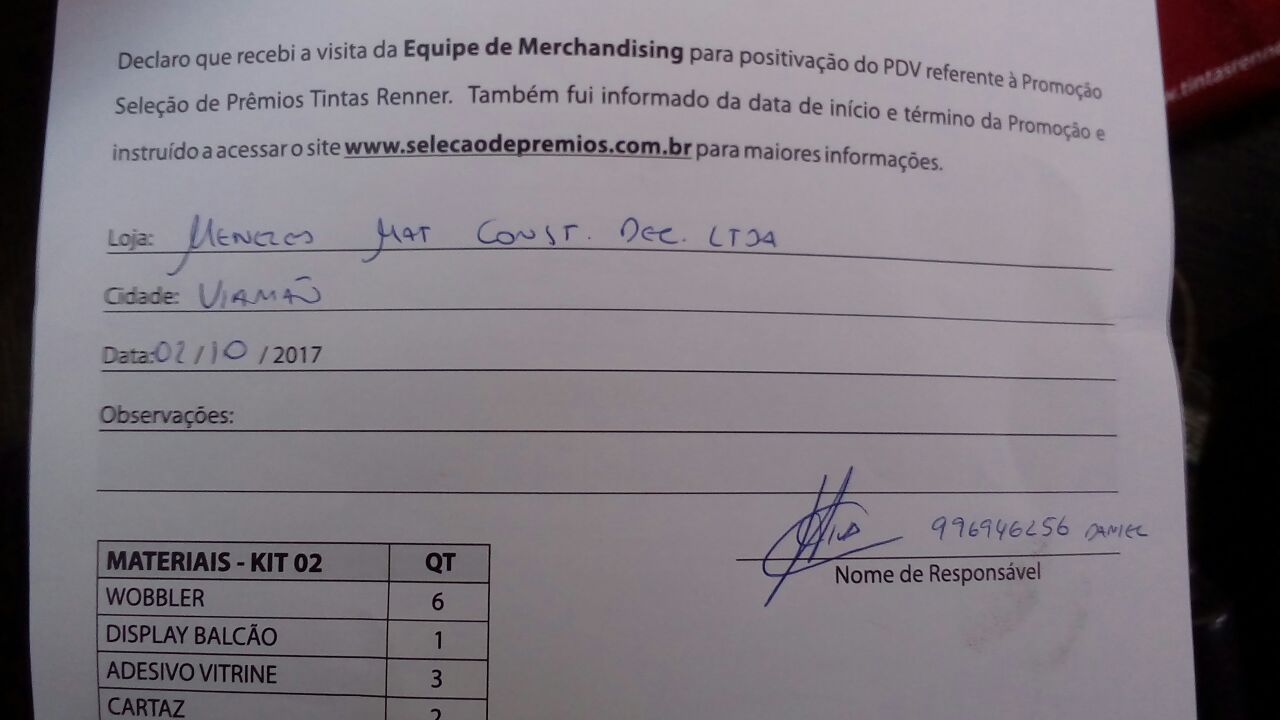 Declaro que recebi a visita da Equipe de Merchandising para positivação do PDV referente à Promoção
Seleção de Prêmios Tintas Renner. Também fui informado da data de início e término da Promoção e
instruído a acessar o site www.selecaodepremios.com.br para maiores informações.
Loja: MENEZES MAT CONST. DEC. LTDA
Cidade: VIAMÃO
Data: 02/10 / 2017
Observações:
996946256 DANIEL
Nome de Responsável
MATERIAIS - KIT 02 QT
WOBBLER 6
DISPLAY BALCÃO 1
ADESIVO VITRINE 3
CARTAZ 2